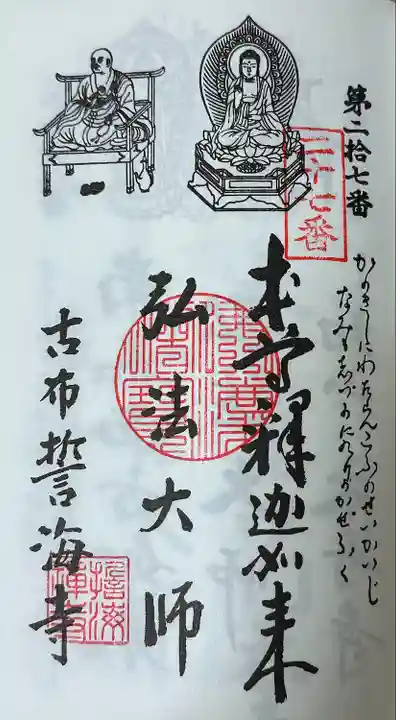 第二拾七番
二十七番
かのきしにわたらんこふのせいかいじ
なみもしづかにのりのかぜふく
本尊釋迦如来
弘法大師
古布誓海寺
誓海
禅寺